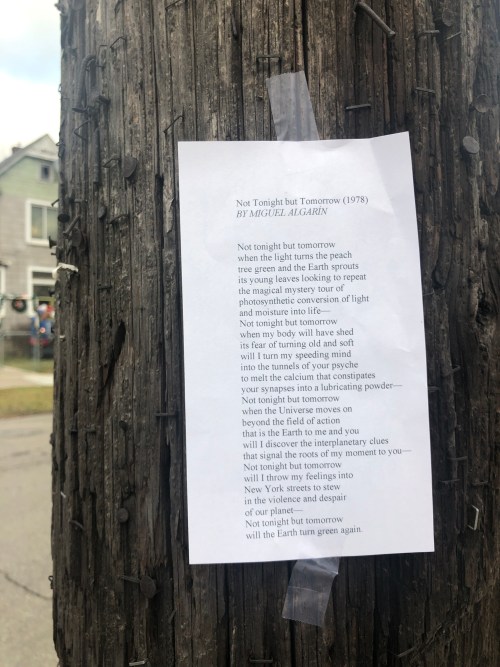 Not Tonight but Tomorrow (1978)
BY MIGUEL ALGARÍN
Not tonight but tomorrow
when the light turns the peach
tree green and the Earth sprouts
its young leaves looking to repeat
the magical mystery tour of
photosynthetic conversion of light
and moisture into life—
Not tonight but tomorrow
when my body will have shed
its fear of turning old and soft
will I turn my speeding mind
into the tunnels of your psyche
to melt the calcium that constipates
your synapses into a lubricating powder—
Not tonight but tomorrow
when the Universe moves on
beyond the field of action
that is the Earth to me and you
will I discover the interplanetary clues
that signal the roots of my moment to you—
Not tonight but tomorrow
will I throw my feelings into
New York streets to stew
in the violence and despair
of our planet—
Not tonight but tomorrow
will the Earth turn green again.